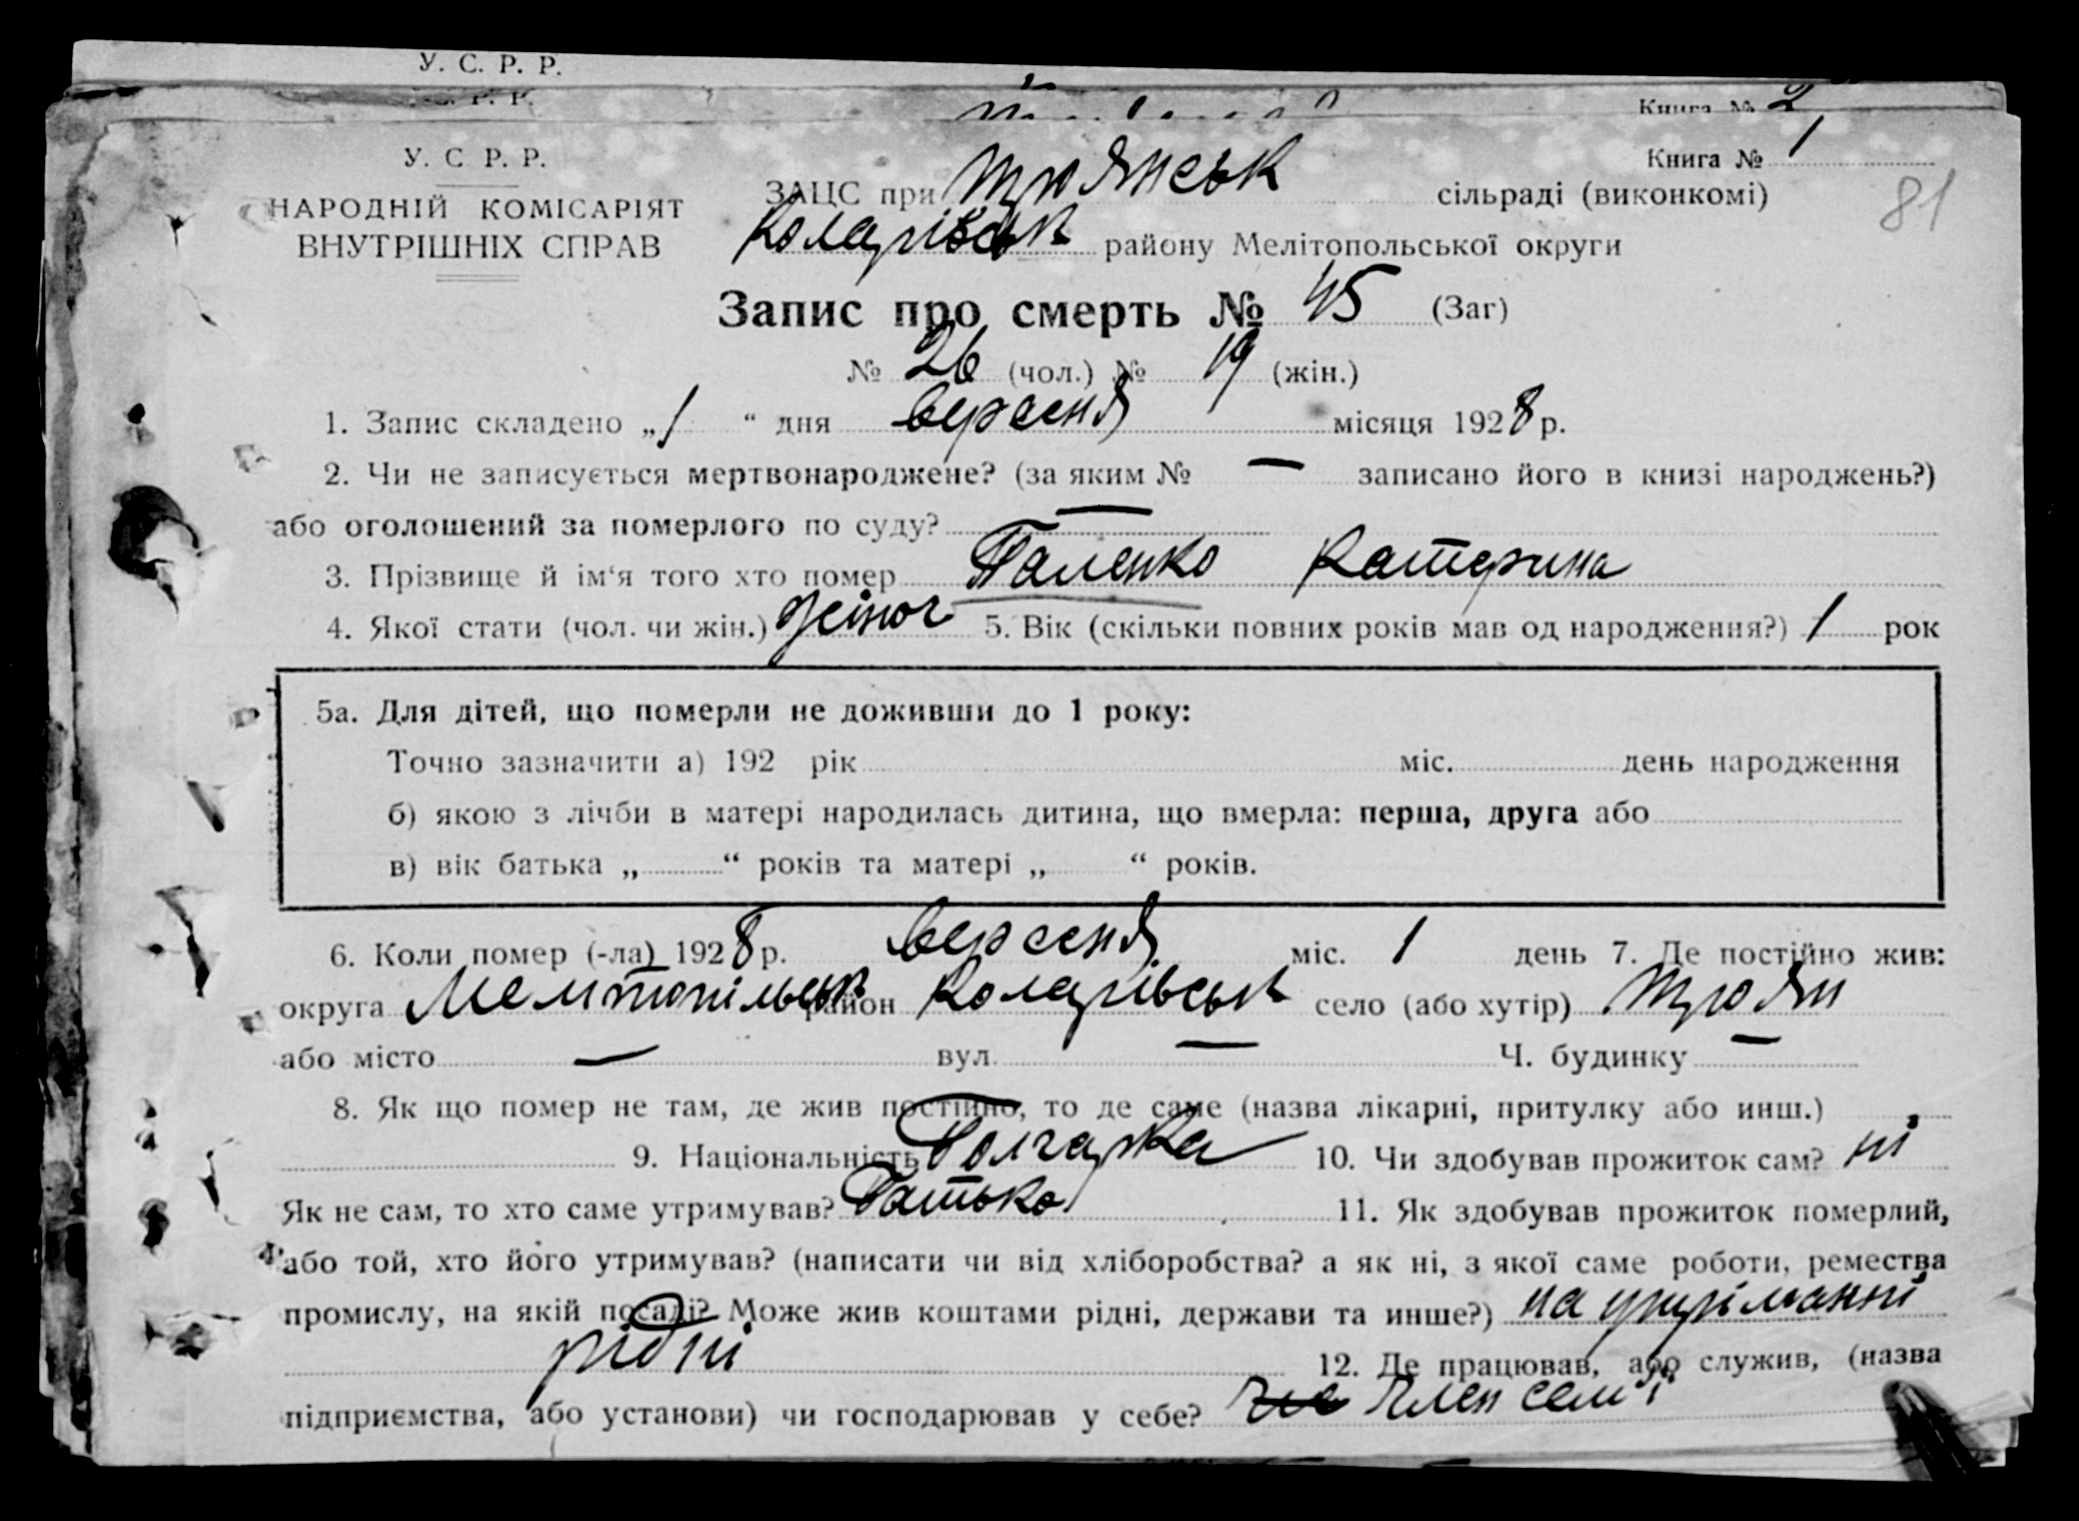 У. С. Р. Р.
Книга № 2
У. С Р. Р.
Книга № 1
81
НАРОДНІЙ КОМІСАРІЯТ
ВНУТРІШНІХ СПРАВ
ЗАЦС при Троянськ сільраді (виконкомі)
Коларівськ району Мелітопольської округи
Запис про смерть № 45 (Заг)
№ 26 (чол.) № 19 (жін.)
1. Запис складено „1“ дня вересня місяця 1928 р.
2. Чи не записується мертвонароджене? (за яким № — записано його в книзі народжень?)
або оголошений за померлого по суду? —
3. Прізвище й ім‘я того хто помер Паленко Катерина
4. Якої стати (чол. чи жін.) жіноч 5. Вік (скільки повних років мав од народження?) 1 рок
5а. Для дітей, що померли не доживши до 1 року:
Точно зазначити а) 192 рік міс. день народження
б) якою з лічби в матері народилась дитина, що вмерла: перша, друга або
в) вік батька „ “ років та матері „ “ років.
6. Коли помер (-ла) 1928 р. вересня міс. 1 день 7. Де постійно жив:
округа Мелітопільськ район Коларівськ село (або хутір) Троян
або місто — вул. — Ч. будинку —
8. Як що помер не там, де жив постійно, то де саме (назва лікарні, притулку або инш.)
9. Національність Болгарка 10. Чи здобував прожиток сам? ні
Як не сам, то хто саме утримував? Батько 11. Як здобував прожиток померлий,
або той, хто його утримував? (написати чи від хліборобства? а як ні, з якої саме роботи, ремества
промислу, на якій посаді? Може жив коштами рідні, держави та инше?) на утріманні
рідні 12. Де працював, або служив, (назва
підприємства, або установи) чи господарював у себе? член сем'ї